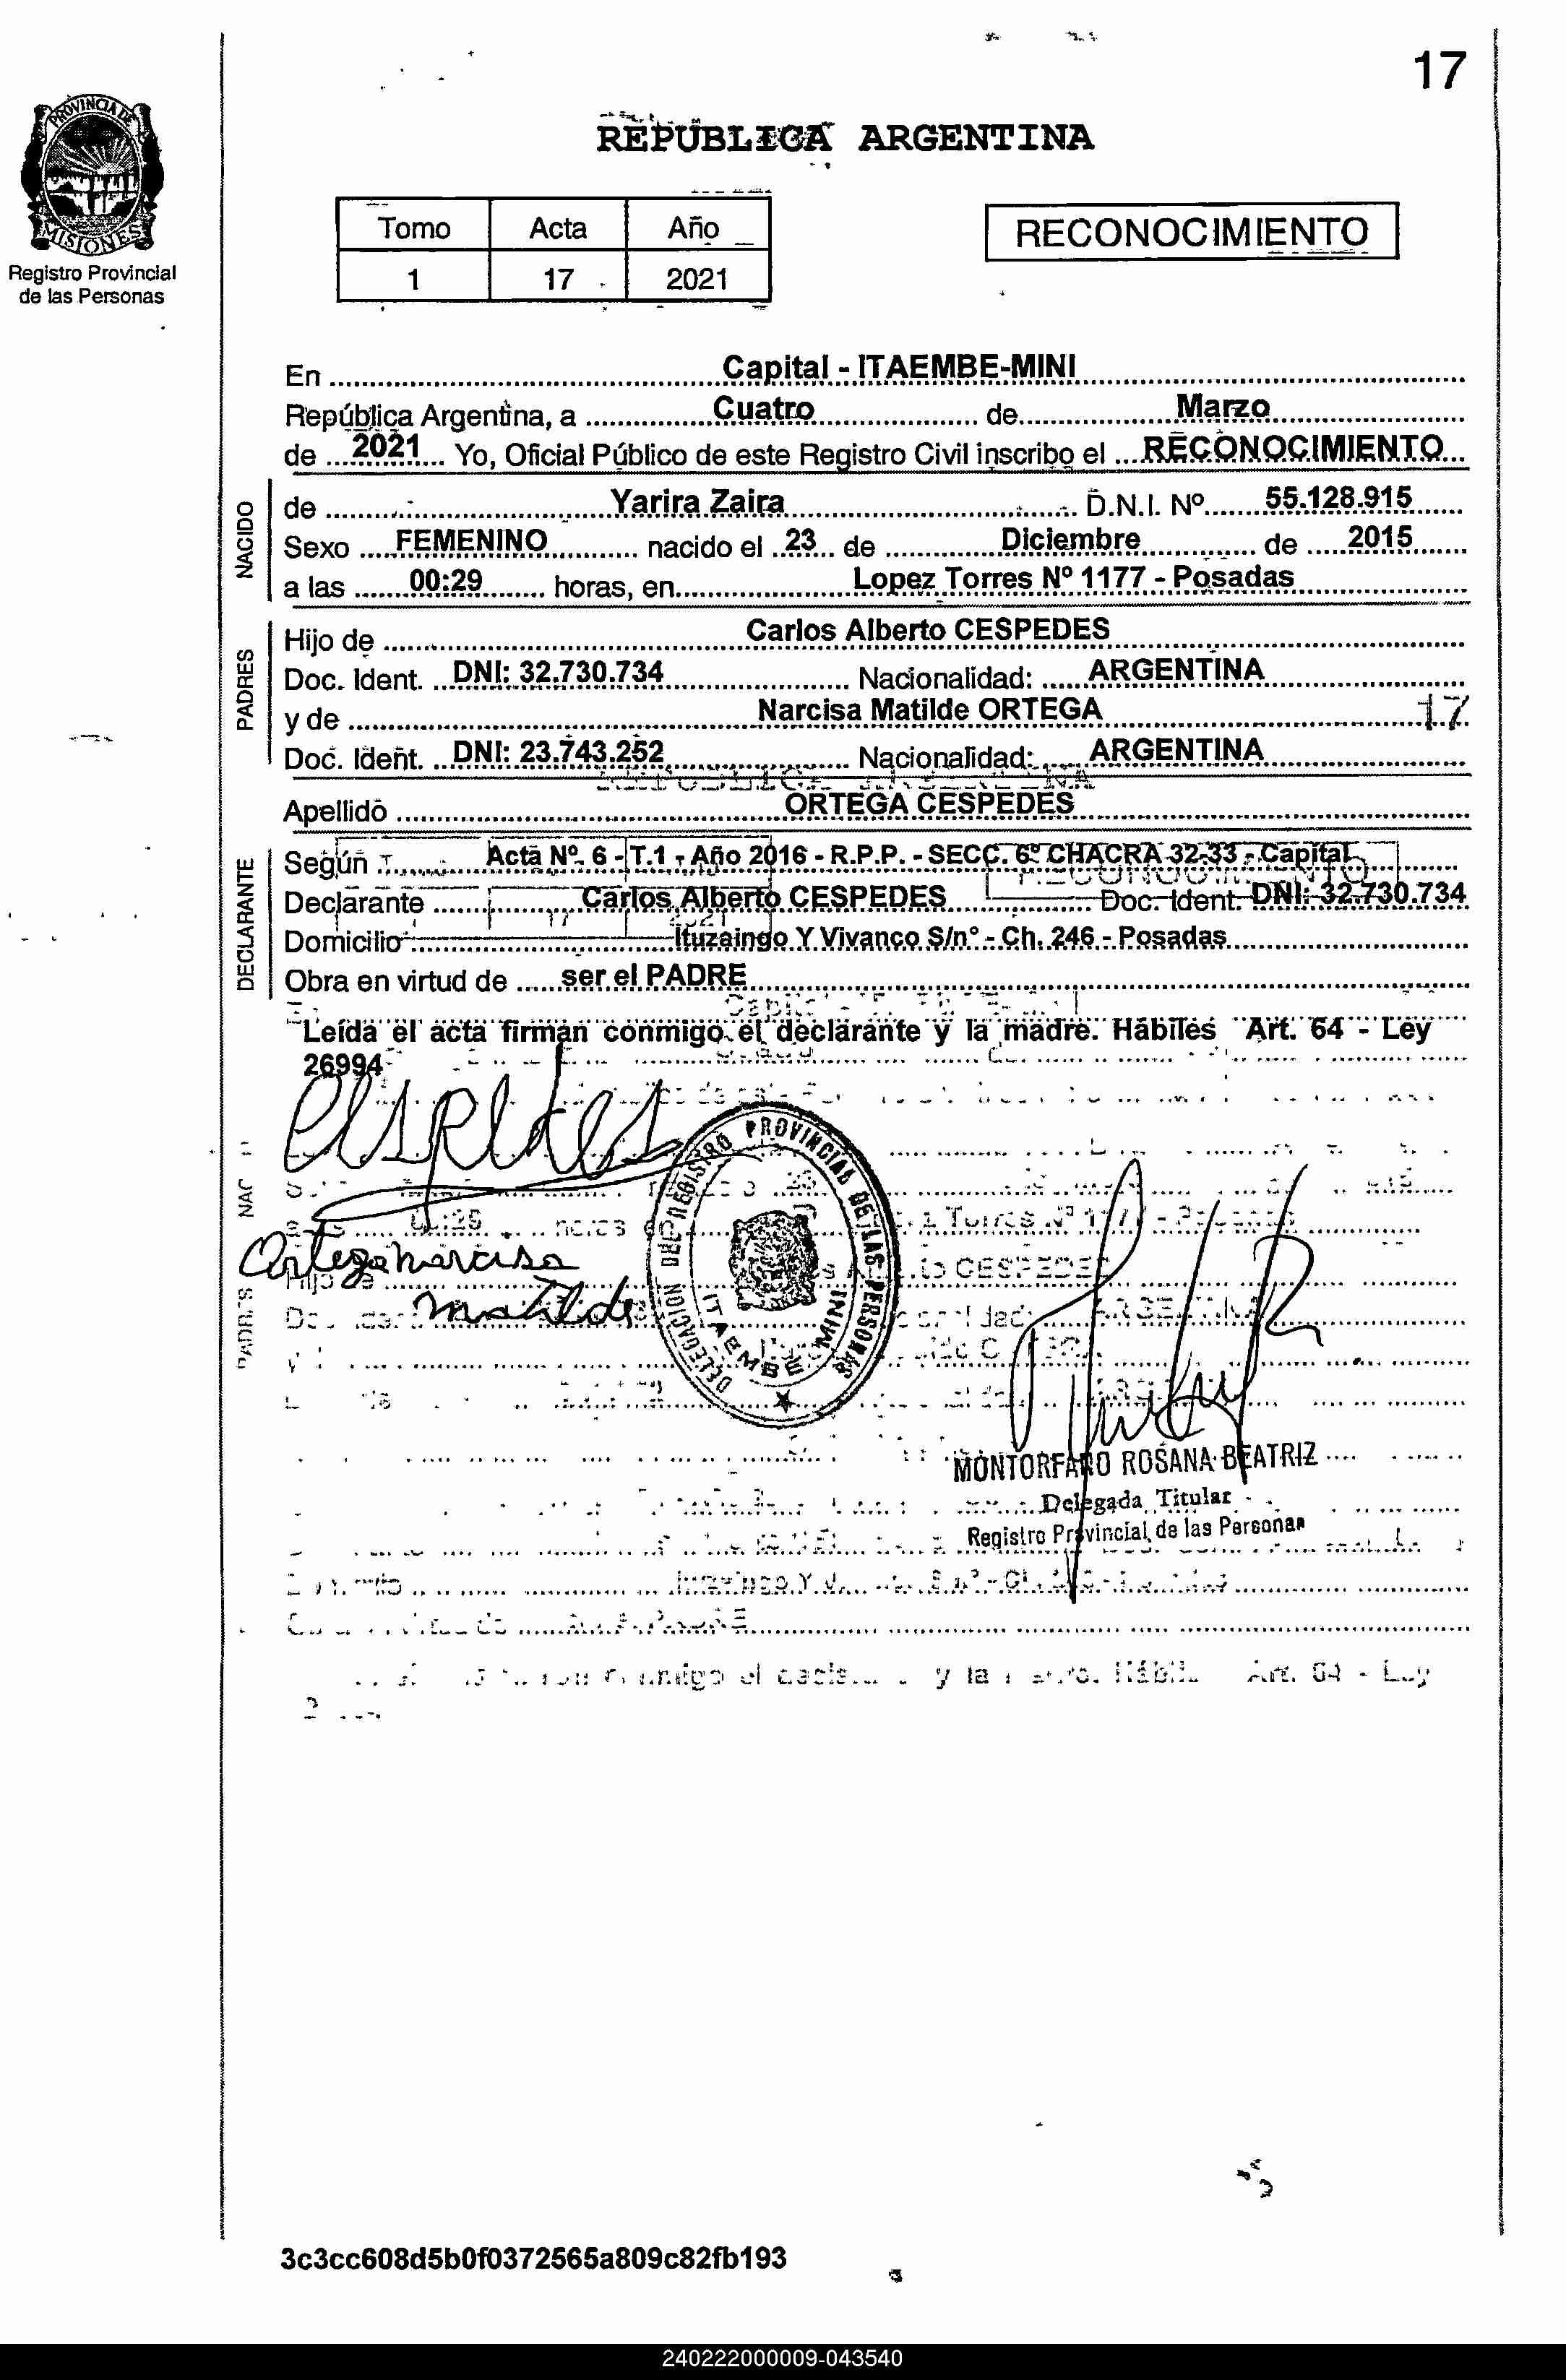 17
PROVINCIA DE
MISIONES
Registro Provincial
de las Personas
REPUBLICA ARGENTINA
Tomo Acta Año
1 17 2021
RECONOCIMIENTO
En Capital - ITAEMBE-MINI
República Argentina, a Cuatro de Marzo
de 2021 Yo, Oficial Público de este Registro Civil inscribo el RECONOCIMIENTO
NACIDO
de Yarira Zaira D.N.I. Nº 55.128.915
Sexo FEMENINO nacido el 23 de Diciembre de 2015
a las 00:29 horas, en Lopez Torres Nº 1177 - Posadas
PADRES
Hijo de Carlos Alberto CESPEDES
Doc. Ident. DNI: 32.730.734 Nacionalidad: ARGENTINA
y de Narcisa Matilde ORTEGA
17
Doc. Ident. DNI: 23.743.252 Nacionalidad: ARGENTINA
Apellido ORTEGA CESPEDES
DECLARANTE
Según Acta Nº 6 - T.1 - Año 2016 - R.P.P. - SECC. 6º CHACRA 32-33 - Capital
Declarante Carlos Alberto CESPEDES Doc. Ident. DNI: 32.730.734
Domicilio Ituzaingo Y Vivanco S/n° - Ch. 246 - Posadas
Obra en virtud de ser el PADRE
Leída el acta firman conmigo el declarante y la madre. Hábiles Art. 64 - Ley
26994
Cespedes
Ortega narcisa
matilde
DELEGACION DEL REGISTRO PROVINCIAL DE LAS PERSONAS
ITAEMBE MINI
MONTORFANO ROSANA BEATRIZ
Delegada Titular
Registro Provincial de las Personas
3c3cc608d5b0f0372565a809c82fb193
240222000009-043540